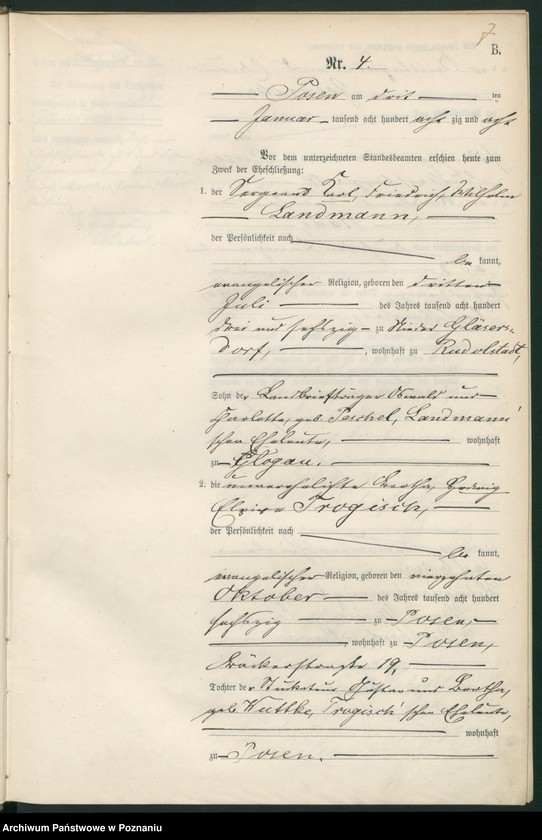 7
B.
Nr. 4.
Posen am drit ten
Januar tausend acht hundert acht zig und acht
Vor dem unterzeichneten Standesbeamten erschien heute zum
Zweck der Eheschließung:
1. der Sergeant Karl, Friedrich, Wilhelm
Landmann,
der Persönlichkeit nach
be kannt,
evangelischer Religion, geboren den dritten
Juli des Jahres tausend acht hundert
drei und sechszig zu Nieder Gläsers-
dorf, , wohnhaft zu Rudolstadt,
Sohn der Landbriefträger Oswald und
Charlotte, geb. Peschel, Landmann'
schen Eheleute, wohnhaft
zu Glogau.
2. die unverehelichte Bertha, Hedwig
Trogisch,
der Persönlichkeit nach
be kannt,
evangelischer Religion, geboren den vierzehnten
Oktober des Jahres tausend acht hundert
sechszig zu Posen,
, wohnhaft zu Posen,
Bäckerstraße 19,
Tochter der Gustav und Bertha,
geb. Wuttke, Trogisch'schen Eheleute,
wohnhaft
zu Posen.
Archiwum Państwowe w Poznaniu